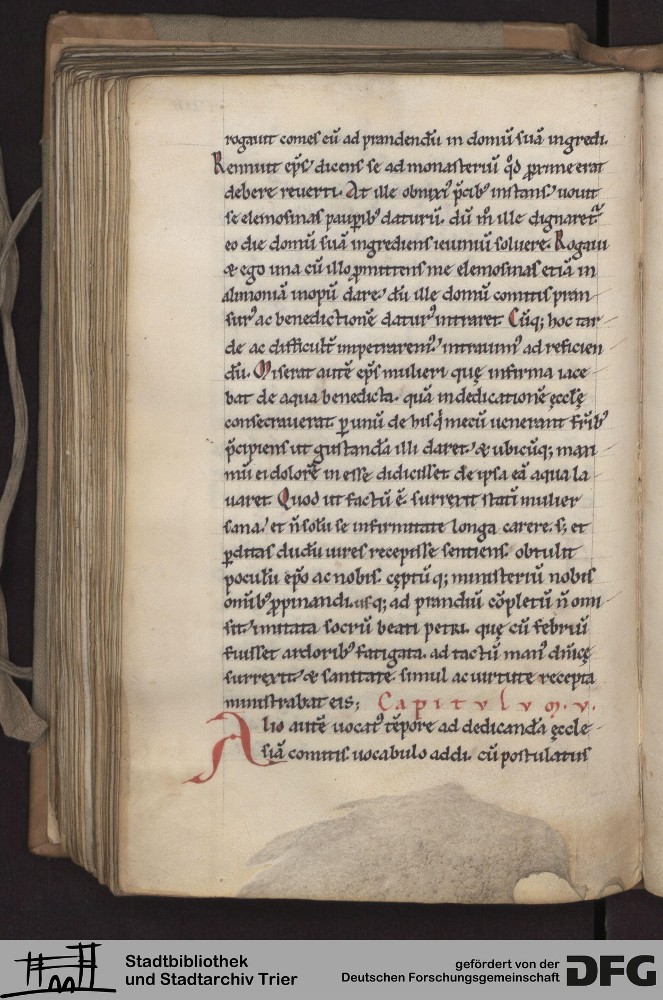 rogauit comes eū ad prandendū in domū suā ingredi.
Rennuit ep̄s dicens se ad monasteriū qd̄ ꝓxime erat
debere reuerti. At ille obnixi᷒ p̄cib᷒ instans uouit
se elemosinas pauꝑib᷒ daturū. dū m̄ ille dignaret᷑
eo die domū suā ingrediens ieiuniū soluere. Rogaui
& ego una cū illo ꝓmittens me elemosinas etiā in
alimoniā inopū dare dū ille domū comitis pran
sur᷒ ac benedictionē datur᷒ intraret. Cūq; hoc tar
de ac difficult̄ impetrarem᷒, intrauim᷒ ad reficien
dū. Miserat autē ep̄s mulieri quę infirma iace
bat de aqua benedicta. quā in dedicationē ęcclę
consecrauerat ꝑ unū de his q̄ mecū uenerant fr̄ib᷒
p̄cipiens ut gustandā illi daret & ubicūq; maxi
mū ei dolorē in esse didicisset de ipsa eā aqua la
uaret. Quod ut factū ē. surrexit statī mulier
sana. et n̄ solū se infirmitate longa carere. s; et
ꝑditas dudū uires recepisse sentiens. obtulit
poculū ep̄o ac nobis. cęptūq; ministeriū nobis
omīb᷒ ꝓpinandi. usq; ad prandiū cōpletū n̄ omi
sit imitata socrū beati petri. quę cū febriū
fuisset ardorib᷒ fatigata. ad tactū man᷒ dn̄icę
surrexit & sanitate. simul ac uirtute recepta
ministrabat eis; Capitulum. v.
Alio autē uocat᷒ tēpore ad dedicandā ęccle
siā comitis. uocabulo addi. cū postulatus
Stadtbibliothek
und Stadtarchiv Trier
gefördert von der
Deutschen Forschungsgemeinschaft
DFG